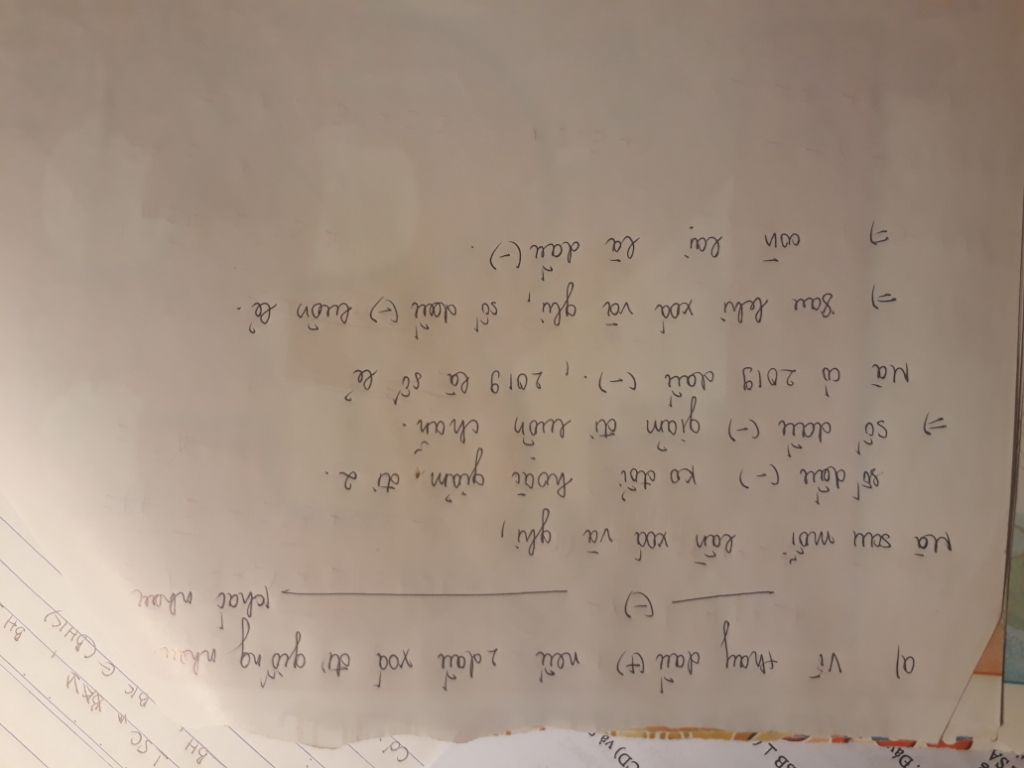 a) Vì thay dấu (+) nếu 2 dấu xoá đi giống nhau
——— (-) ——————— khác nhau
Mà sau mỗi lần xoá và ghi,
số dấu (-) ko đổi hoặc giảm đi 2.
=> số dấu (-) giảm đi luôn chẵn.
Mà có 2019 dấu (-)., 2019 là số lẻ
=> Sau khi xoá và ghi, số dấu (-) luôn lẻ.
=> còn lại là dấu (-).
BH
E (BHK)
BH.
SC
CD) và